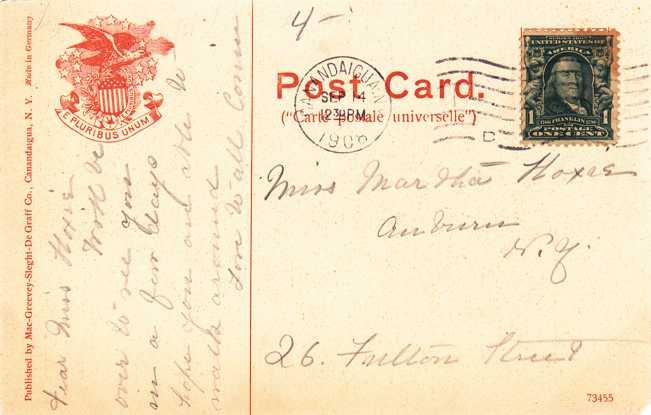 4-
UNITED STATES OF
AMERICA
FRANKLIN
1
1
POSTAGE
ONE CENT
CANANDAIGUA, N.Y.
SEP 14
1906
Post Card.
("Carte postale universelle")
D
Miss Martha Hoxie
Auburn
N.Y.
26. Fulton Street
73455
E PLURIBUS UNUM
Published by Mac-Greevey-Sleght-De Graff Co., Canandaigua, N. Y. Made in Germany
Dear Miss Hoxie
Will be
over to see you
in a few days
hope you are able to
walk around
Love to all